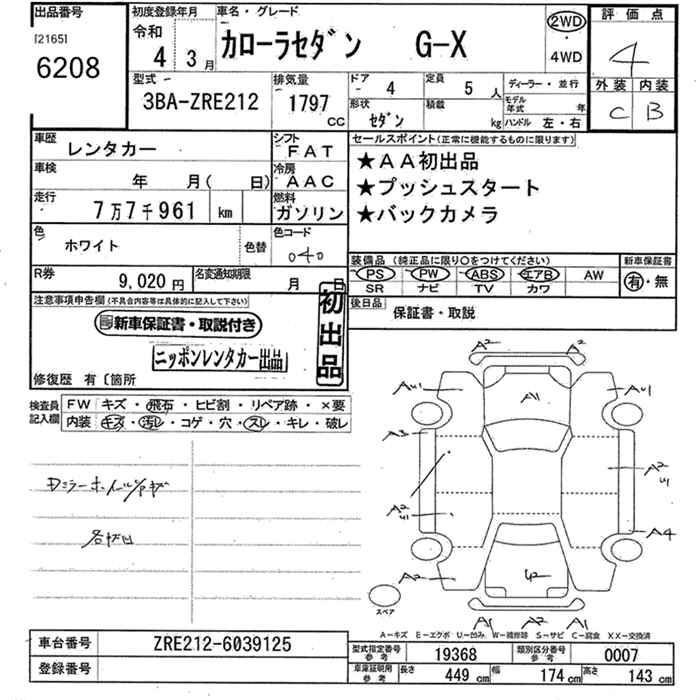 出品番号 初度登録年月 車名・グレード 評価点
[2165] 令和 カローラセダン G-X 2WD 4
6208 4年 3月 4WD 外装 内装
C B
型式 排気量 ドア 4 定員 5人 ディーラー・並行
3BA-ZRE212 1797cc 形状 セダン 積載 kg モデル年式 年
ハンドル 左・右
車歴 レンタカー シフト FAT セールスポイント(正常に機能するものに限ります)
車検 年 月( 日) 冷房 AAC ★AA初出品
走行 7万7千961 km 燃料 ガソリン ★プッシュスタート
★バックカメラ
色 ホワイト 色替 色コード 040
装備品 (純正品に限り○をつけてください) 新車保証書
PS PW ABS エアB AW 有・無
SR ナビ TV カワ
R券 9,020円 名変通知期限 月 日
後日品 保証書・取説
注意事項申告欄(不具合内容等は具体的に記入して下さい) 初出品
新車保証書・取説付き
ニッポンレンタカー出品
修復歴 有〔箇所
検査員記入欄 FW キズ・飛石・ヒビ割・リペア跡・×要
内装 キズ・汚レ・コゲ・穴・スレ・キレ・破レ
A2 A2
AU1 A1 AU1
A3
A2
U1
A2
U1
A4
A2 U2
A1 A2 A1
スペア
A－キズ E－エクボ U－凹み W－補修跡 S－サビ C－腐食 XX－交換済
車台番号 ZRE212-6039125
登録番号
型式指定番号 参考 19368 類別区分番号 参考 0007
車庫証明用 参考 長さ 449cm 幅 174cm 高さ 143cm